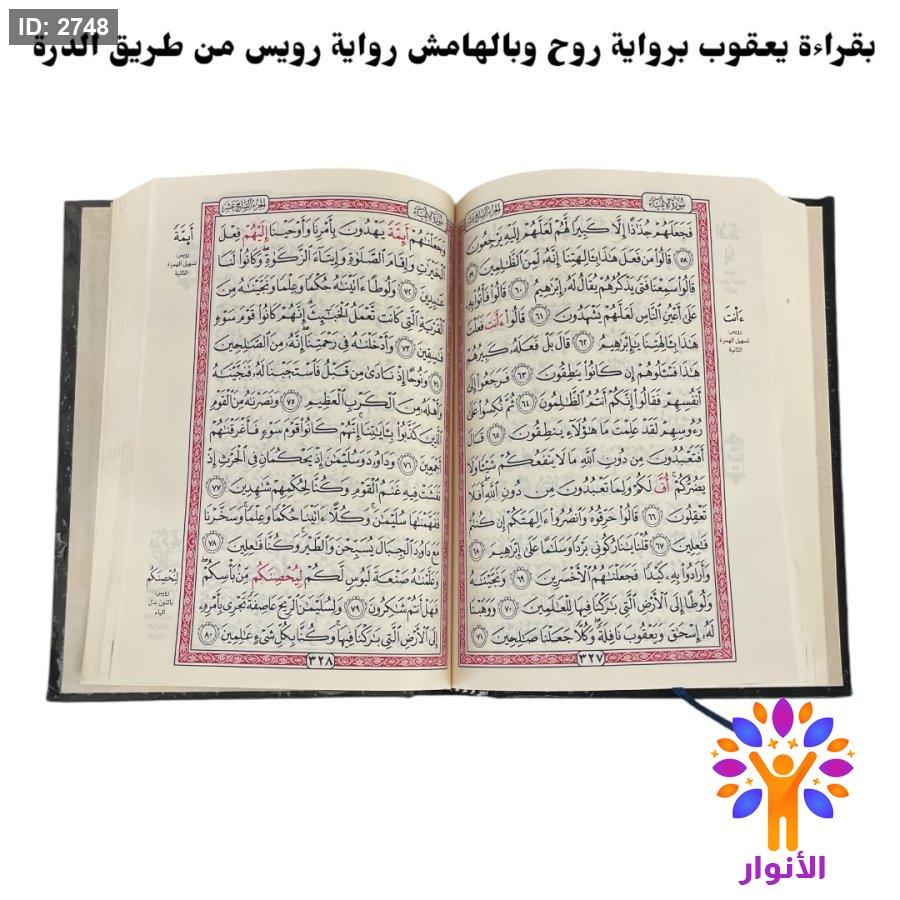 ID: 2748
بقراءة يعقوب برواية روح وبالهامش رواية رويس من طريق الدرة
الجزء السابع عشر
سورة الأنبياء
فَجَعَلَهُمْ جُذَاذًا إِلَّا كَبِيرًا لَّهُمْ لَعَلَّهُمْ إِلَيْهِ يَرْجِعُونَ
٥٨ قَالُوا مَن فَعَلَ هَٰذَا بِآلِهَتِنَا إِنَّهُ لَمِنَ الظَّالِمِينَ ٥٩
قَالُوا سَمِعْنَا فَتًى يَذْكُرُهُمْ يُقَالُ لَهُ إِبْرَاهِيمُ ٦٠ قَالُوا فَأْتُوا بِهِ
عَلَىٰ أَعْيُنِ النَّاسِ لَعَلَّهُمْ يَشْهَدُونَ ٦١ قَالُوا ءَأَنتَ فَعَلْتَ
هَٰذَا بِآلِهَتِنَا يَا إِبْرَاهِيمُ ٦٢ قَالَ بَلْ فَعَلَهُ كَبِيرُهُمْ
هَٰذَا فَسْـَٔلُوهُمْ إِن كَانُوا يَنطِقُونَ ٦٣ فَرَجَعُوا إِلَىٰ
أَنفُسِهِمْ فَقَالُوا إِنَّكُمْ أَنتُمُ الظَّالِمُونَ ٦٤ ثُمَّ نُكِسُوا عَلَىٰ
رُءُوسِهِمْ لَقَدْ عَلِمْتَ مَا هَٰؤُلَاءِ يَنطِقُونَ ٦٥ قَالَ
أَفَتَعْبُدُونَ مِن دُونِ اللَّهِ مَا لَا يَنفَعُكُمْ شَيْئًا وَلَا
يَضُرُّكُمْ أُفَّ لَّكُمْ وَلِمَا تَعْبُدُونَ مِن دُونِ اللَّهِ أَفَلَا
تَعْقِلُونَ ٦٦ قَالُوا حَرِّقُوهُ وَانصُرُوا ءَالِهَتَكُمْ إِن كُنتُمْ
فَاعِلِينَ ٦٧ قُلْنَا يَا نَارُ كُونِي بَرْدًا وَسَلَامًا عَلَىٰ إِبْرَاهِيمَ ٦٨
وَأَرَادُوا بِهِ كَيْدًا فَجَعَلْنَاهُمُ الْأَخْسَرِينَ ٦٩ وَنَجَّيْنَاهُ
وَلُوطًا إِلَى الْأَرْضِ الَّتِي بَارَكْنَا فِيهَا لِلْعَالَمِينَ ٧٠ وَوَهَبْنَا
لَهُ إِسْحَاقَ وَيَعْقُوبَ نَافِلَةً وَكُلًّا جَعَلْنَا صَالِحِينَ ٧١
٣٢٧
ءَأَنتَ
رويس:
تسهيل الهمزة
الثانية
سورة الأنبياء
الجزء السابع عشر
وَجَعَلْنَاهُمْ أَئِمَّةً يَهْدُونَ بِأَمْرِنَا وَأَوْحَيْنَا إِلَيْهُمْ فِعْلَ
الْخَيْرَاتِ وَإِقَامَ الصَّلَوٰةِ وَإِيتَاءَ الزَّكَوٰةِ وَكَانُوا لَنَا
عَابِدِينَ ٧٢ وَلُوطًا ءَاتَيْنَاهُ حُكْمًا وَعِلْمًا وَنَجَّيْنَاهُ مِنَ
الْقَرْيَةِ الَّتِي كَانَت تَّعْمَلُ الْخَبَائِثَ إِنَّهُمْ كَانُوا قَوْمَ سَوْءٍ
فَاسِقِينَ ٧٣ وَأَدْخَلْنَاهُ فِي رَحْمَتِنَا إِنَّهُ مِنَ الصَّالِحِينَ
٧٤ وَنُوحًا إِذْ نَادَىٰ مِن قَبْلُ فَاسْتَجَبْنَا لَهُ فَنَجَّيْنَاهُ
وَأَهْلَهُ مِنَ الْكَرْبِ الْعَظِيمِ ٧٥ وَنَصَرْنَاهُ مِنَ الْقَوْمِ
الَّذِينَ كَذَّبُوا بِآيَاتِنَا إِنَّهُمْ كَانُوا قَوْمَ سَوْءٍ فَأَغْرَقْنَاهُمْ
أَجْمَعِينَ ٧٦ وَدَاوُودَ وَسُلَيْمَانَ إِذْ يَحْكُمَانِ فِي الْحَرْثِ إِذْ
نَفَشَتْ فِيهِ غَنَمُ الْقَوْمِ وَكُنَّا لِحُكْمِهِمْ شَاهِدِينَ ٧٧
فَفَهَّمْنَاهَا سُلَيْمَانَ وَكُلًّا ءَاتَيْنَا حُكْمًا وَعِلْمًا وَسَخَّرْنَا
مَعَ دَاوُودَ الْجِبَالَ يُسَبِّحْنَ وَالطَّيْرَ وَكُنَّا فَاعِلِينَ ٧٨
وَعَلَّمْنَاهُ صَنْعَةَ لَبُوسٍ لَّكُمْ لِيُحْصِنَكُم مِّن بَأْسِكُمْ
فَهَلْ أَنتُمْ شَاكِرُونَ ٧٩ وَلِسُلَيْمَانَ الرِّيحَ عَاصِفَةً تَجْرِي بِأَمْرِهِ
إِلَى الْأَرْضِ الَّتِي بَارَكْنَا فِيهَا وَكُنَّا بِكُلِّ شَيْءٍ عَالِمِينَ ٨٠
٣٢٨
أَئِمَّةً
رويس:
تسهيل الهمزة
الثانية
لِنُحْصِنَكُم
رويس:
بالنون بدل
الياء
الأنوار